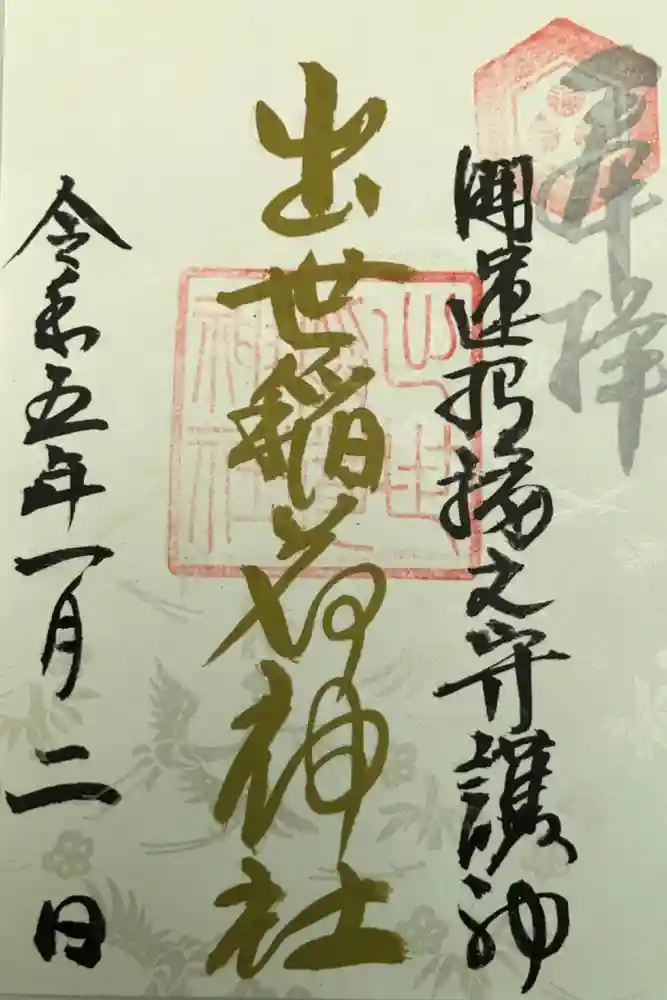 奉拝
開運招福之守護神
出世稲荷神社
令和五年一月二日
出世稲荷神社